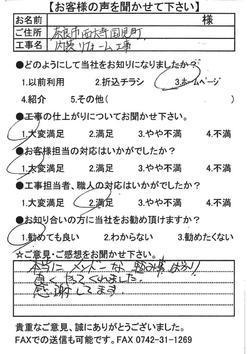 【お客様の声を聞かせて下さい】
お名前 様
ご住所 奈良市西大寺国見町
工事名 内装リフォーム工事
●どのようにして当社をお知りになりましたか?
1.以前利用 2.折込チラシ 3.ホームページ
4.紹介 5.その他( )
●工事の仕上がりについてお聞かせ下さい。
1.大変満足 2.満足 3.やや不満 4.不満
●お客様担当の対応はいかがでしたか?
1.大変満足 2.満足 3.やや不満 4.不満
●工事担当者、職人の対応はいかがでしたか?
1.大変満足 2.満足 3.やや不満 4.不満
●お知り合いの方に当社をお勧め頂けますか?
1.勧めても良い 2.わからない 3.勧めたくない
☆ご意見・ご感想をお聞かせ下さい。
本当にメンドーな
良くやってくれました。
感謝してます。
貴重なご意見、誠にありがとうございました。
FAXでの送信も可能です。FAX 0742-31-1269